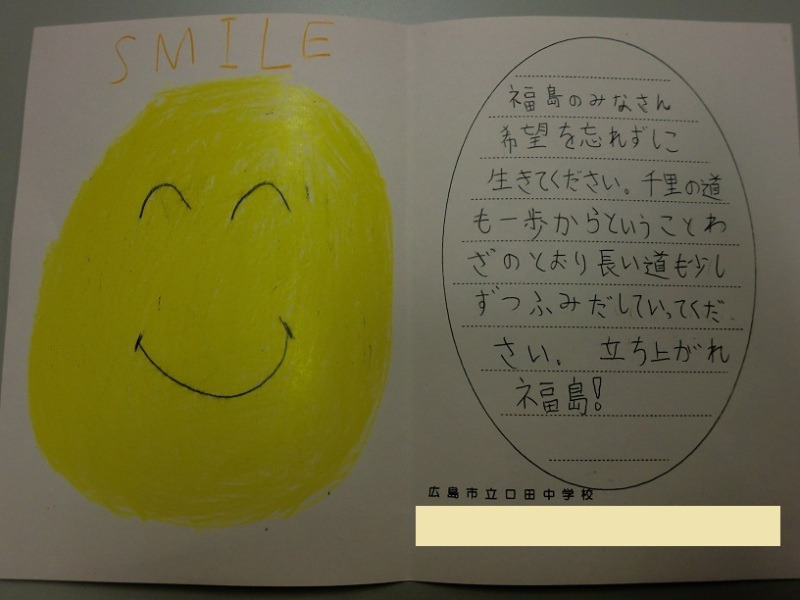 SMILE
福島のみなさん
希望を忘れずに
生きてください。千里の道
も一歩からということわ
ざのとおり長い道も少し
ずつふみだしていってくだ
さい。 立ち上がれ
福島!
広島市立口田中学校